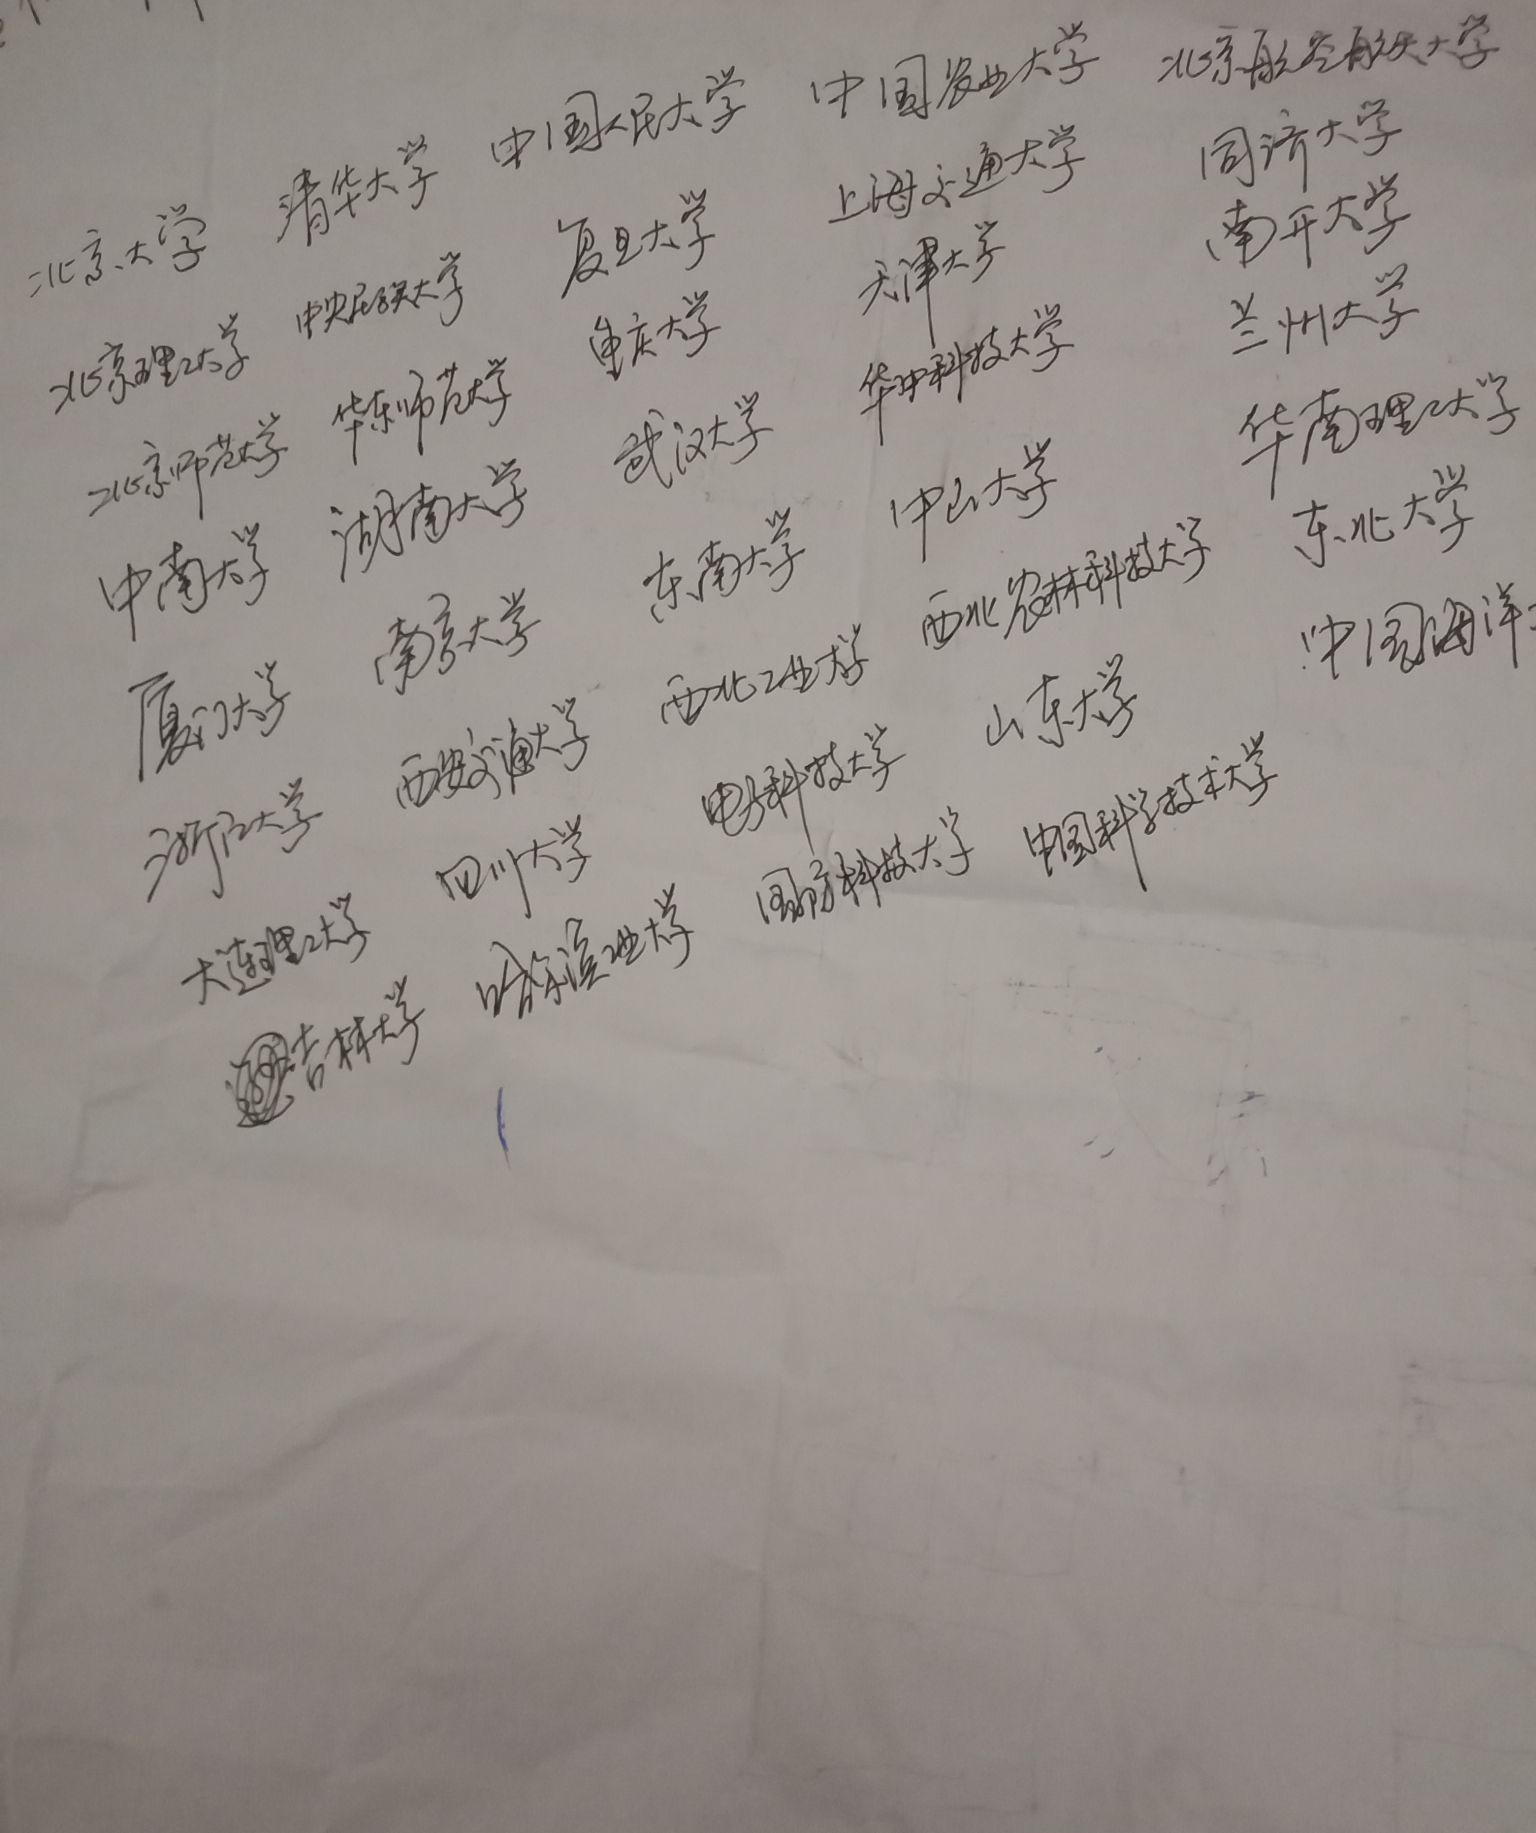 北京大学 清华大学 中国人民大学 中国农业大学 北京航空航天大学
北京理工大学 中央民族大学 复旦大学 上海交通大学 同济大学
北京师范大学 华东师范大学 重庆大学 天津大学 南开大学
中南大学 湖南大学 武汉大学 华中科技大学 兰州大学
厦门大学 南京大学 东南大学 中山大学 华南理工大学
浙江大学 西安交通大学 西北工业大学 西北农林科技大学 东北大学
大连理工大学 四川大学 电子科技大学 山东大学 中国海洋
吉林大学 哈尔滨工业大学 国防科技大学 中国科学技术大学